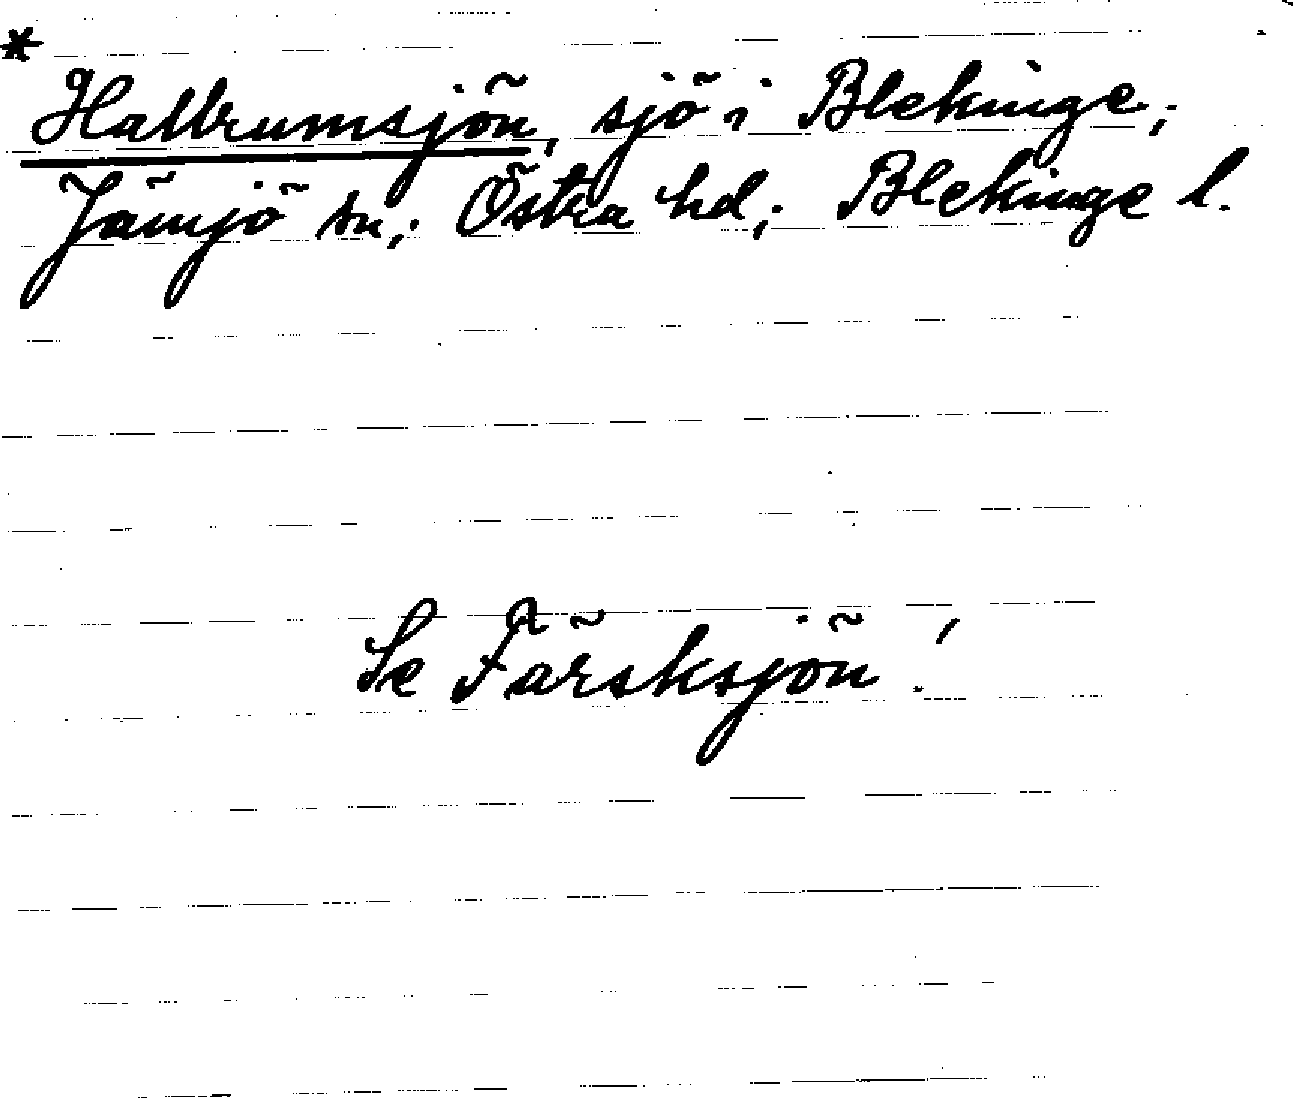 * Hallrumsjön, sjö i Blekinge;
Jämjö sn; Östra hd; Blekinge l.
Se Färsksjön!